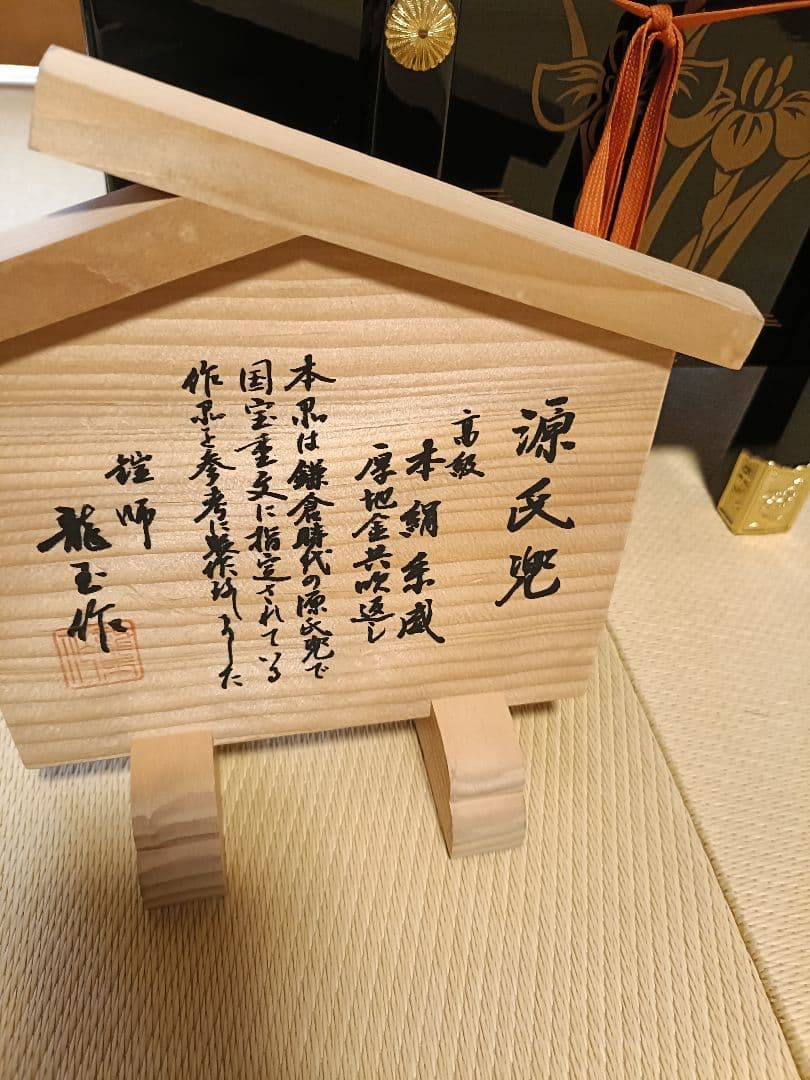 源氏兜
高級
本絹糸威
厚地金共吹返し
本品は鎌倉時代の源氏兜で
国宝重文に指定されている
作品を参考に製作致しました
鎧師
龍玉作